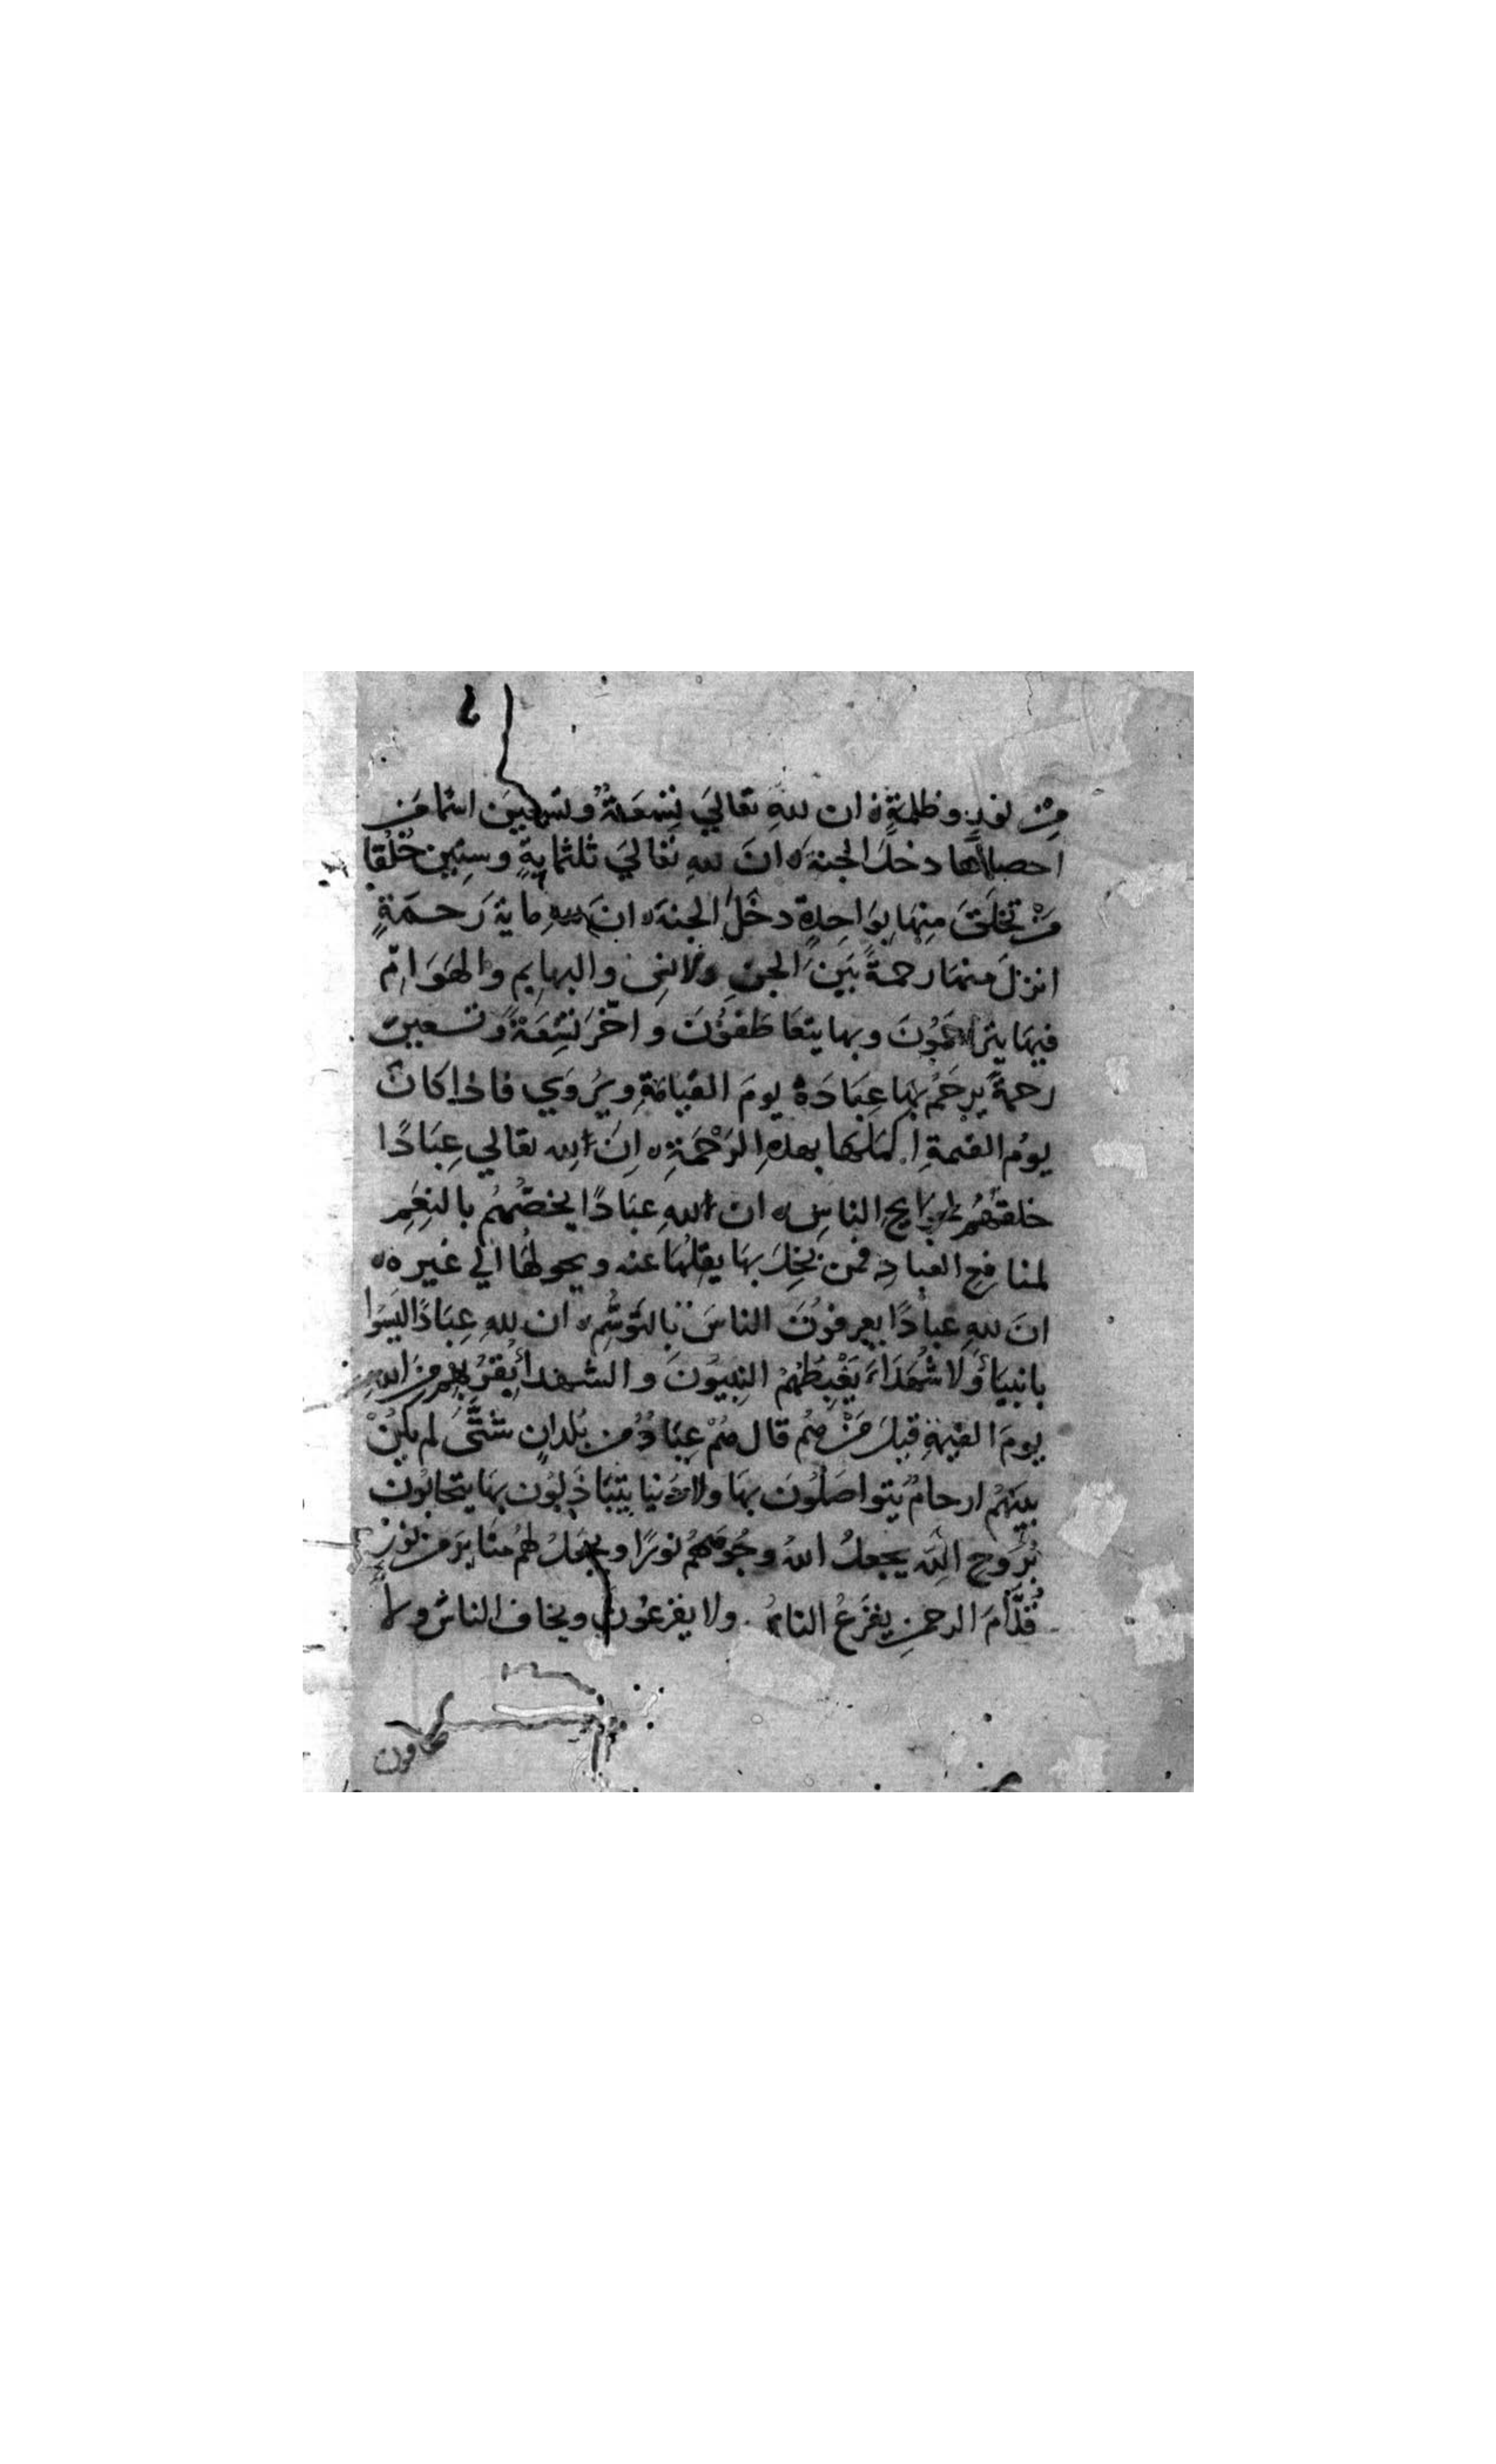 مِنْ نورٍ وظلمةٍ ان للهِ تعاليَ تِسْعَةً وتسعينَ اسما مَن
احصاها دخلَ الجنةَ ه انَ للهِ تعاليَ ثلثمايةٍ وستين خُلُقًا
مَنْ تخلَّقَ مِنْهَا بوَاحِدةٍ دخَلَ الجنةَ ه انَ للهِ مايةَ رَحمَةٍ
انزلَ منهَا رحمةً بَينَ الجنِ والانسِ والبهايم والهَوَامّ
فيهَا يتراحَمُونَ وبها يتعَاطَفوُنَ واخَّرَ تسْعَةً وتسعين
رحمةً يرْحَمُ بهَا عِبَادَهُ يومَ القيَامَةِ ويُروَي فاذا كانَ
يومُ القيمةِ اكملهَا بهذهِ الرَحْمَةِ ه اِنَ لله تعالي عِبَادًا
خلقهُم لحوَايجِ الناسِ ه ان للهِ عبَادًا يخصّهُمُ بالنِعَمِ
لمنافِعِ العبادِ فمن بخِلَ بهَا ينقلهَا عنه ويحولهَا الي غيره ه
انَ للهِ عبادًا يعرفونَ الناسَ بالتَوَسُّمِ ه ان للهِ عِبَادًا ليَسُوا
بانبيَأَ ولا شُهَدَاءَ يَغْبِطُهُمُ النبيونَ والشهدأُ بقُرْبِهِم مِنَ اللهِ
يومَ القيمةِ قيلَ مَنْ هُم قال هُمْ عِبَادٌ من بُلدانٍ شتَّي لم يكُنْ
بينهُمْ ارحامٌ يتواصَلُونَ بهَا ولا دُنيا يتبَاذَلونَ بهَا يتحابُونَ
بُروحِ اللهِ يجعلُ اللهُ وجُوهَهُمْ نورًا ويجعَلُ لهُمْ منَابِرَ من نورٍ
قُدَّامَ الرحمنِ يفزَعُ الناسُ ولا يفزعُونَ ويخاف الناسُ ولا
يخافون